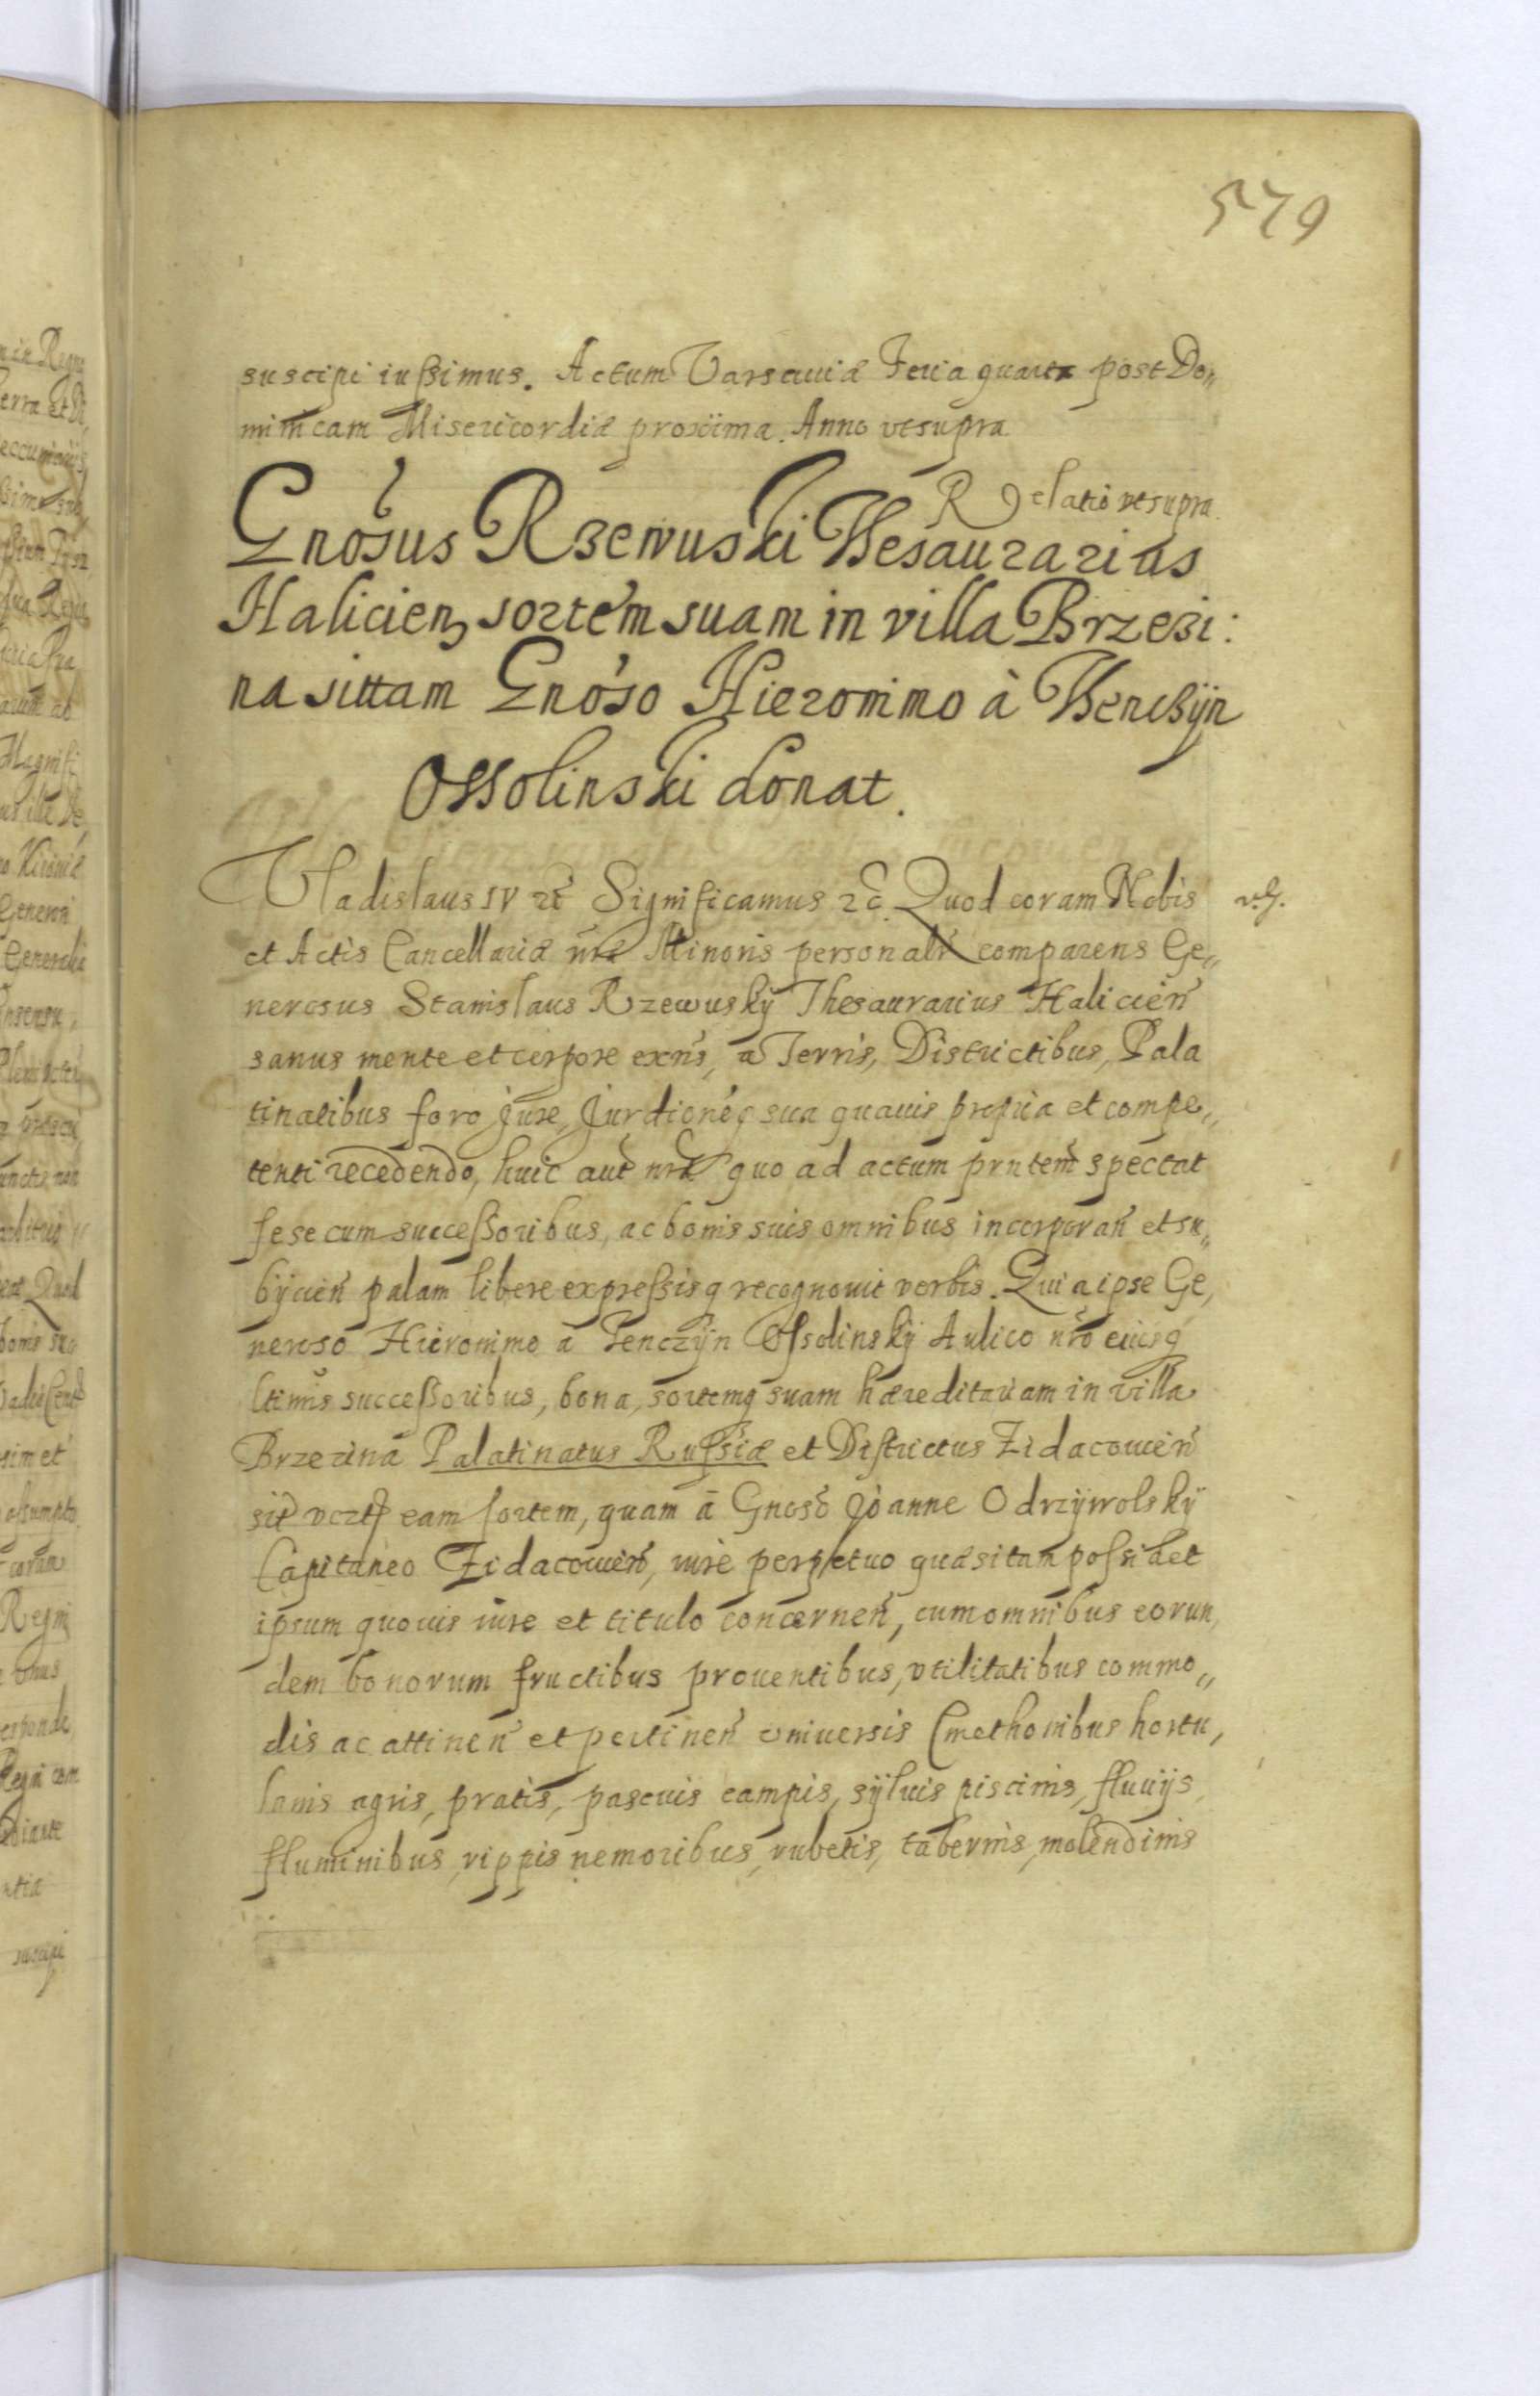 579
suscipi iussimus. Actum Varsauiæ Feria quarta post Do„
minicam Misericordiæ proxima. Anno vt supra
Relatio vt supra.
Gnosus Rzewuski Thesaurarius
Halicien, sortem suam in villa Brzezi:
na sittam Gnoso Hieronimo à Thenczÿn
Ossolinski donat.
Vladislaus IV etc Significamus etc. Quod coram Nobis
et Actis Cancellariæ nræ Minoris personalr comparens Ge„
nerosus Stanislaus Rzewuskÿ Thesaurarius Halicien
sanus mente et corpore exns, a Terris, Districtibus, Pala
tinatibus foro jure, Jurdioneq sua quauis propria et compe„
tenti recedendo, huic aut nræ quo ad actum prntem spectat
sese cum successoribus, ac bonis suis omnibus incorporan et su„
bÿcien palam libere expressisq recognouit verbis. Quia ipse Ge,
neroso Hieronimo a Tenczÿn Ossolinskÿ Aulico nro eiusq
ltimis successoribus, bona, sortemq suam hæreditariam in villa
Brzezina Palatinatus Russiæ et Districtus Zidacouien
sit vczt eam sortem, quam ā Gnoso Joanne Odrzÿwolskÿ
Capitaneo Zidacouien, iure perpetuo quæsitam possidet
ipsum quouis iure et titulo concernen, cum omnibus eorun,
dem bonorum fructibus prouentibus, vtilitatibus commo„
dis ac attinen et pertinen vniuersis Cmethonibus hortu,
lanis agris, pratis, pascuis campis, sÿluis piscinis, fluuijs,
fluminibus, rippis nemoribus, rubetis, tabernis, molendinis